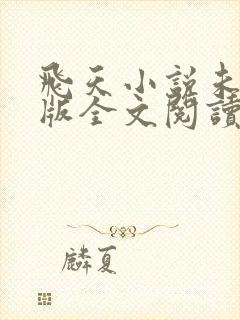 飛天小說未
版全文閱讀
麟夏